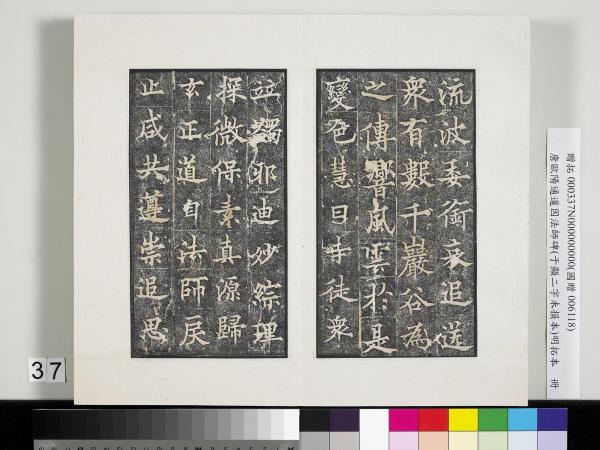 流波委銜哀追送
衆有數千巖谷為
之傳響風雲於是
變色慧日寺徒衆
玄
竝躅邪迪妙綜理
探微保素真源歸
玄正道自法師戾
止咸共遵崇追思
贈拓 000337N000000000(國贈 006118)
唐歐陽通道因法師碑(于顯二字未損本)明拓本 冊
37